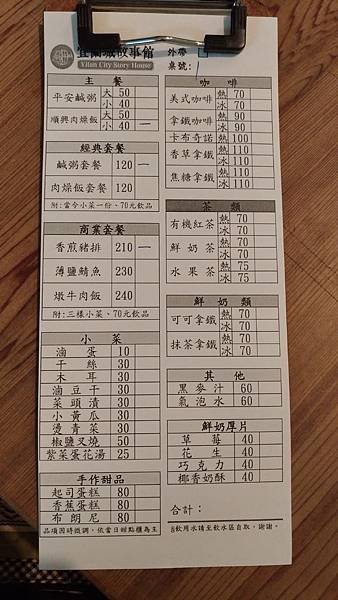 宜蘭城故事館
Yilan City Story House
外帶
桌號：
主 餐
平安鹹粥 大 50
小 40
順興肉燥飯 大 50
小 40 一
經典套餐
鹹粥套餐 120 一
肉燥飯套餐 120
附:當令小菜一份、70元飲品
商業套餐
香煎豬排 210 一
薄鹽鯖魚 230
燉牛肉飯 240
附:三樣小菜、70元飲品
小 菜
滷 蛋 10
干 絲 30
木 耳 30
滷豆干 30
菜頭漬 30
小黃瓜 30
燙青菜 30
椒鹽叉燒 50
紫菜蛋花湯 25
手作甜品
起司蛋糕 80
香蕉蛋糕 80
布朗尼 80
品項因時微調，依當日甜點櫃為主
咖 啡
美式咖啡 熱 70
冰 70
拿鐵咖啡 熱 90
冰 90
卡布奇諾 熱 100
香草拿鐵 熱 110
冰 110
焦糖拿鐵 熱 110
冰 110
茶 類
有機紅茶 熱 70
冰 70
鮮奶茶 熱 70
冰 70
水果茶 熱 75
冰 75
鮮奶類
可可拿鐵 熱 70
冰 70
抹茶拿鐵 熱 70
冰 70
其 他
黑麥汁 60
氣泡水 60
鮮奶厚片
草 莓 40
花 生 40
巧克力 40
椰香奶酥 40
合計：
飲用水請至飲水區自取，謝謝。